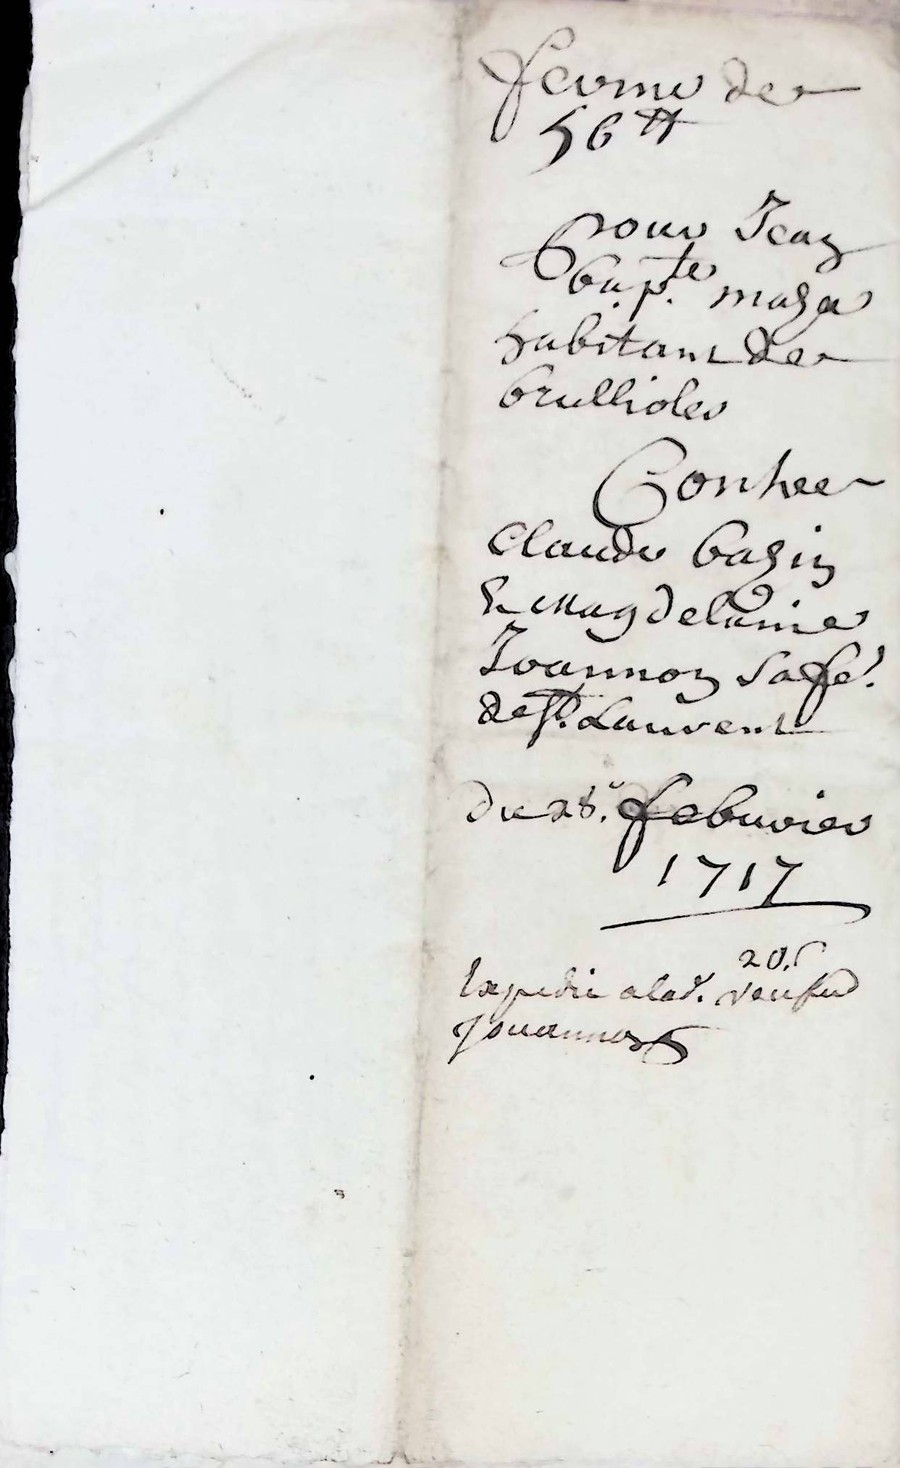 ferme de
56ᵗᵗ
pour Jean
bap.te maza
habitant de
brullioles
Contre
Claude bazin
Et Magdelaine
Joannon sa fe.
de st. Laurent
du 28.e febuvrier
1717
20.s
Expedié a lad. veufue
Jouannon